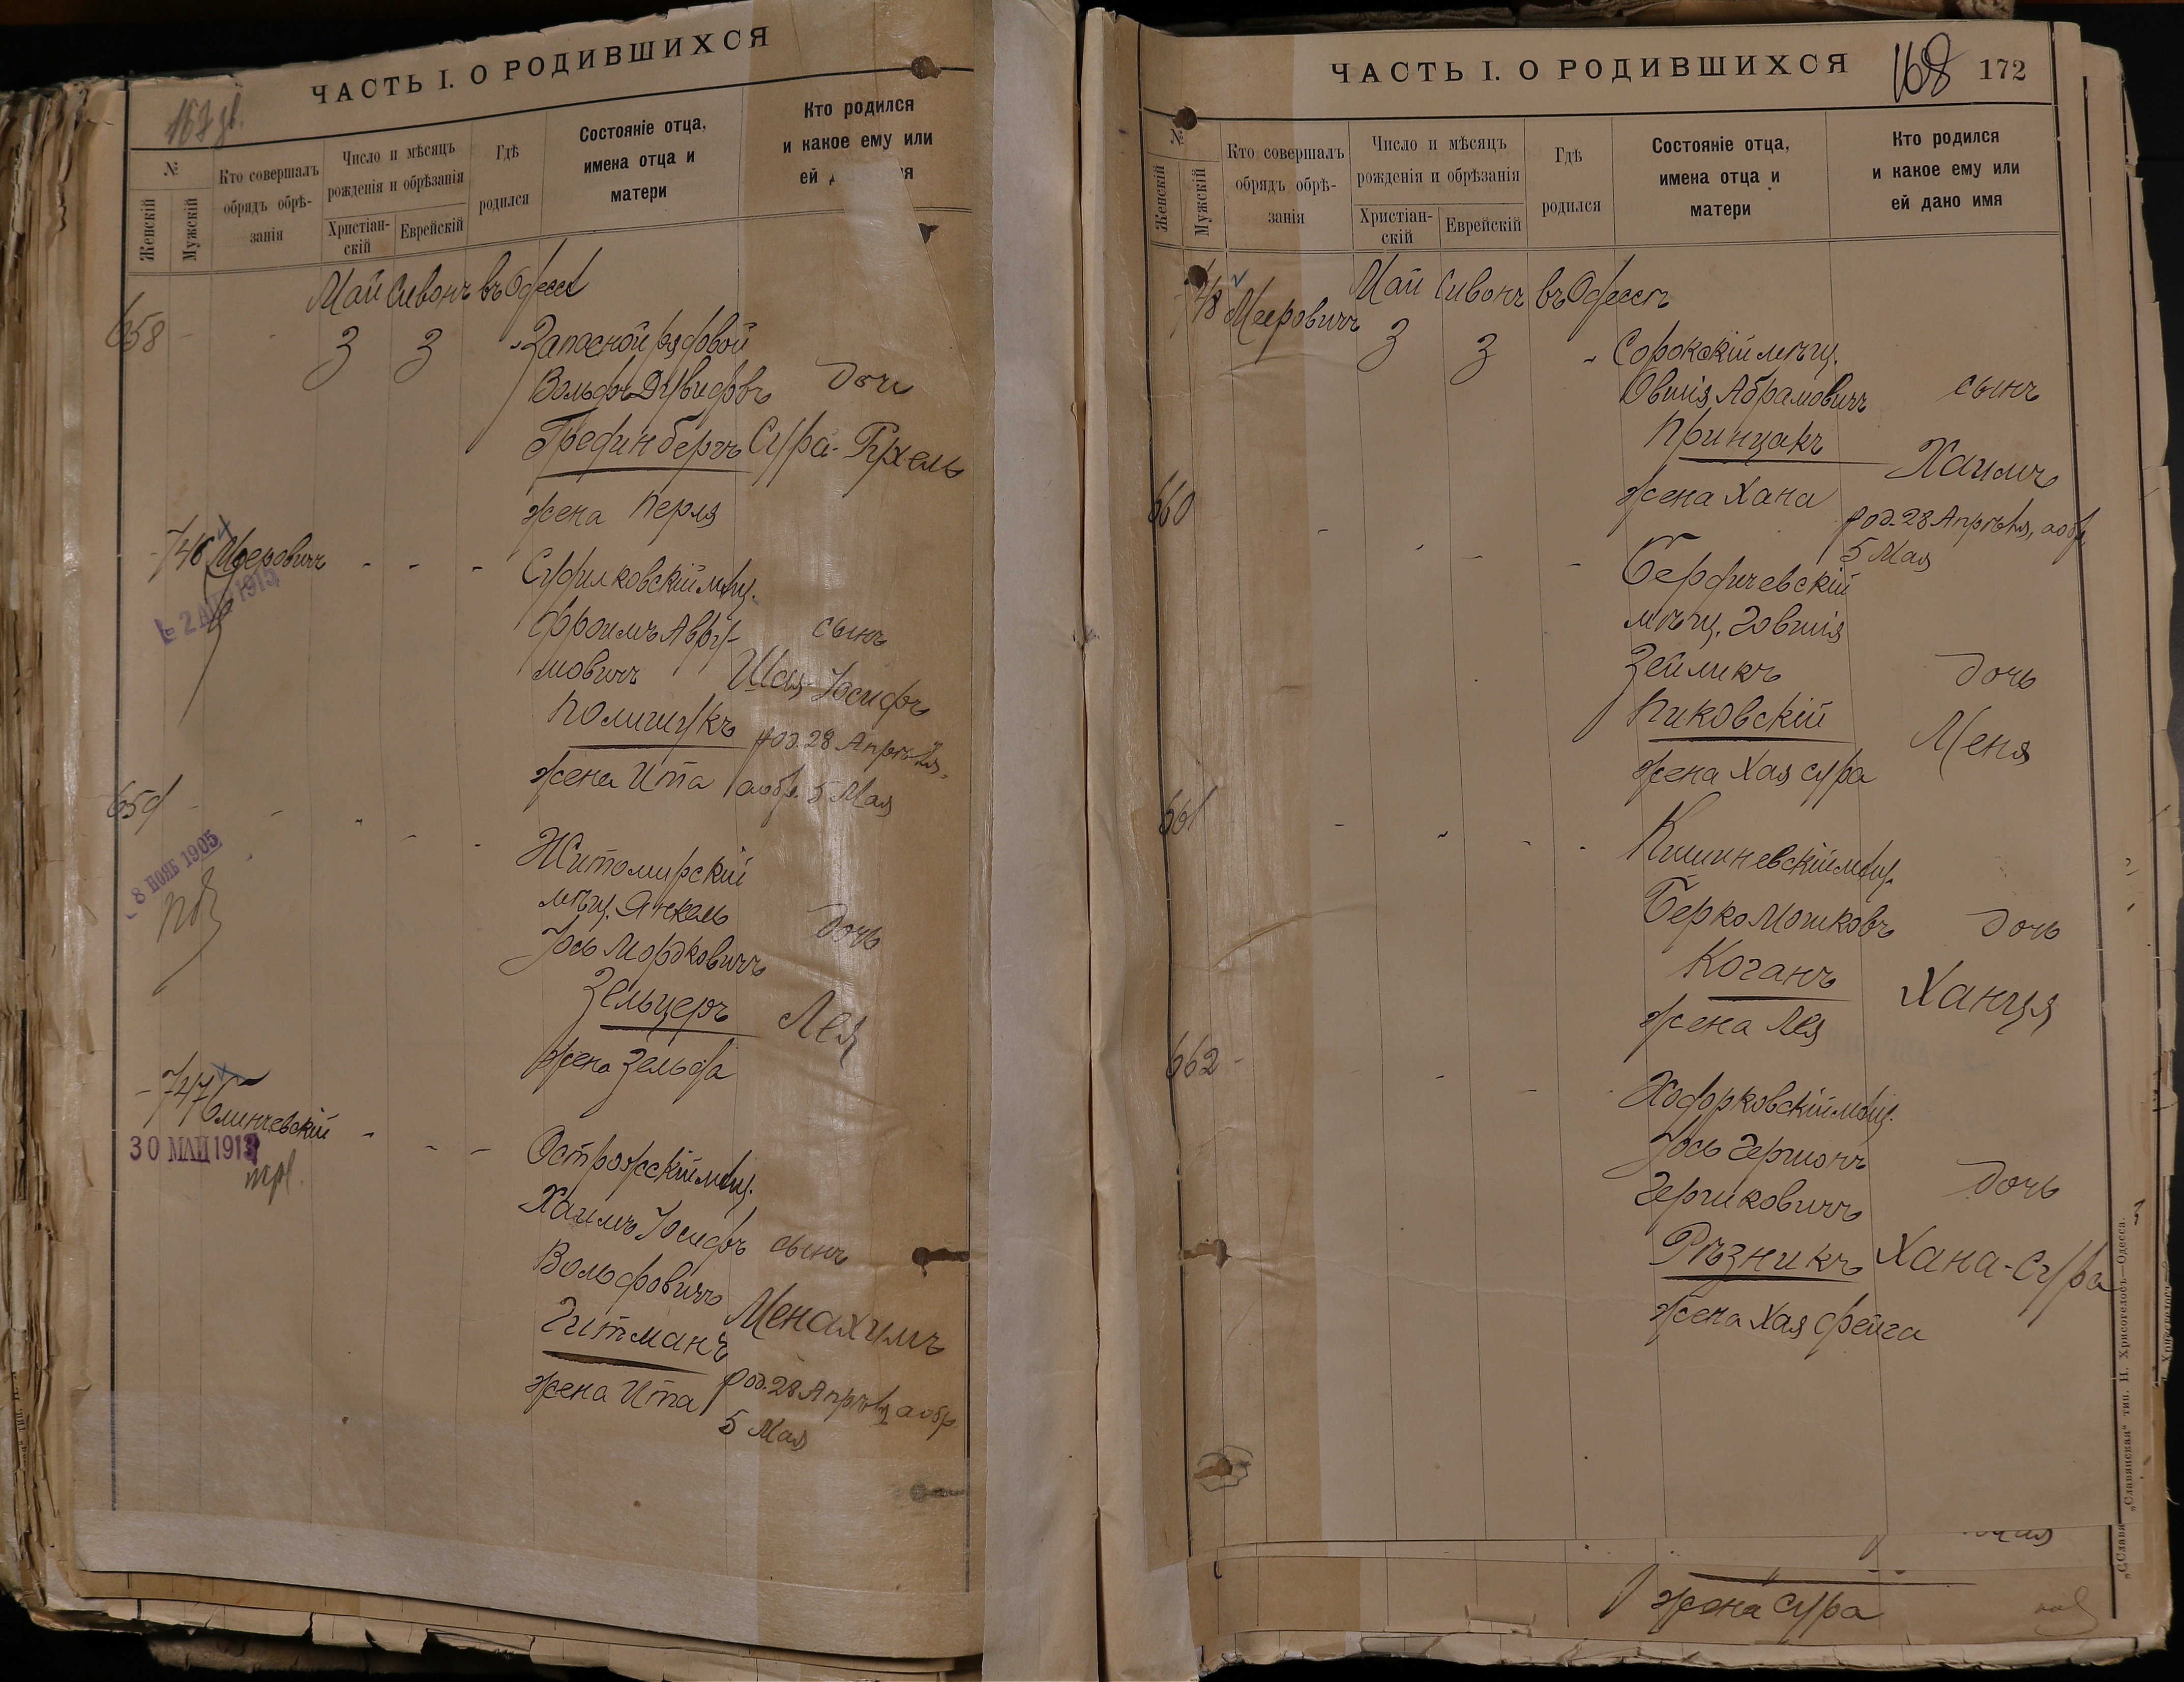 ЧАСТЬ I. О РОДИВШИХСЯ
№
Женскій
Мужскій
Кто совершалъ
обрядъ обрѣ-
занія
Число и мѣсяцъ
рожденія и обрѣзанія
Христіан-
скій
Еврейскій
Гдѣ
родился
Состояніе отца,
имена отца и
матери
Кто родился
и какое ему или
ей
Май Сивонъ въ Одессѣ
658 - - 3 3 - Запасной рядовой
Вольфъ Дувидовъ дочь
Грединбергъ Сура-Рухель
жена Перля
746 Мееровичъ - - - Судилковскій мѣщ.
Фроимъ Авру- сынъ
мовичъ Шая-Іосифъ
Полищукъ род. 28 Апрѣля,
жена Ита а обр. 5 Мая
2 1915
659 - - - - - Житомирскій
мѣщ. Янкель
Іось Мордковичъ дочь
Зельцеръ Лея
жена Зельда
8 НОЯБ 1905
747 Глинчевскій - - - Острожскій мѣщ.
30 МАЦ 1913
Хаимъ Іосифъ сынъ
Вольфовичъ
Гитманъ Менахимъ
жена Ита род. 28 Апрѣля, а обр
5 Мая
ЧАСТЬ I. О РОДИВШИХСЯ 168 172
№
Женскій
Мужскій
Кто совершалъ
обрядъ обрѣ-
занія
Число и мѣсяцъ
рожденія и обрѣзанія
Христіан-
скій
Еврейскій
Гдѣ
родился
Состояніе отца,
имена отца и
матери
Кто родился
и какое ему или
ей дано имя
Май Сивонъ въ Одессѣ
748 Мееровичъ 3 3 - Сорокскій мѣщ.
Овшія Абрамовичъ сынъ
Принцакъ Хаимъ
жена Хана род. 28 Апрѣля, а обр.
5 Мая
660 - - - - Бердичевскій
мѣщ. Говшія
Зейликъ дочь
Пиковскій Меня
жена Хая Сура
661 - - - - Кишиневскій мѣщ.
Берко Мошковъ дочь
Коганъ Ханця
жена Лея
662 - - - Ходорковскій мѣщ.
Іось Гершонъ
Гершковичъ дочь
Рѣзникъ Хана-Сура
жена Хая Фейга
жена Сура
„Славянская“ тип. Н. Хрисогелосъ—Одесса.